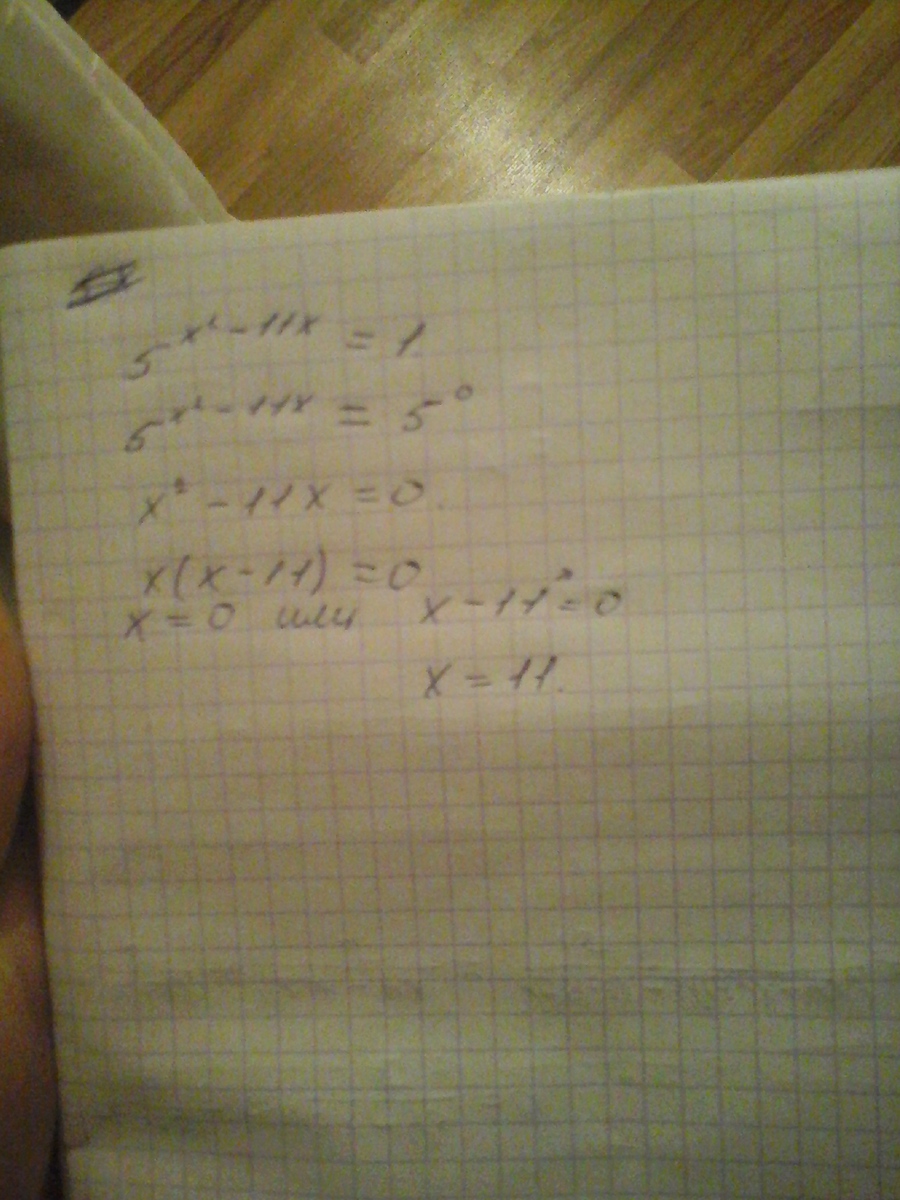 5^{x²-11x} = 1.
5^{x²-11x} = 5⁰
x² - 11x = 0.
x(x-11) = 0
x = 0 или x - 11 = 0
x = 11.